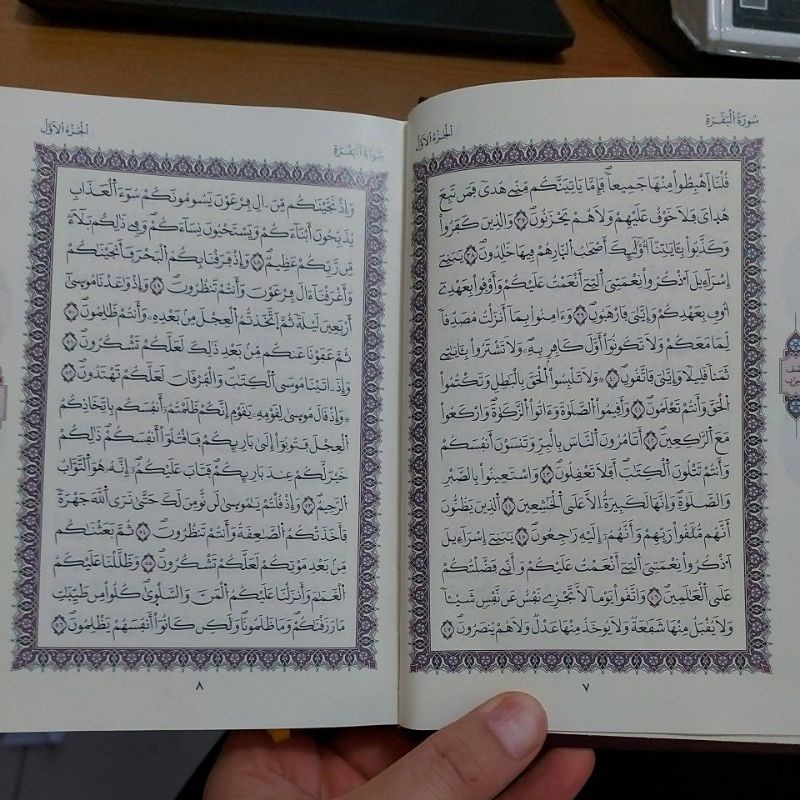 سُورَةُ الْبَقَرَةِ
الْجُزْءُ الْأَوَّلُ
قُلْنَا اَهْبِطُواْ مِنْهَا جَمِيعاً فَإِمَّا يَاتِيَنَّكُم مِّنِّے هُدىً فَمَن تَبِعَ
هُدَايَ فَلَا خَوْفٌ عَلَيْهِمْ وَلَا هُمْ يَحْزَنُونَ ٣٧ وَالذِينَ كَفَرُواْ
وَكَذَّبُواْ بِـَٔايَٰتِنَا أُوْلَٰٓئِكَ أَصْحَٰبُ النّ۪ارِ هُمْ فِيهَا خَٰلِدُونَ ٣٨ يَٰبَنِےٓ
إِسْرَآءِيلَ اَذْكُرُواْ نِعْمَتِيَ اَلتِےٓ أَنْعَمْتُ عَلَيْكُمْ وَأَوْفُواْ بِعَهْدِےٓ
أُوفِ بِعَهْدِكُمْ وَإِيَّٰيَ فَارْهَبُونِ ٣٩ وَءَامِنُواْ بِمَآ أَنزَلْتُ مُصَدِّقاً
لِّمَا مَعَكُمْ وَلَا تَكُونُوٓاْ أَوَّلَ كَافِرِۢ بِهِۦ وَلَا تَشْتَرُواْ بِـَٔايَٰتِے
ثَمَناً قَلِيلاً وَإِيَّٰيَ فَاتَّقُونِ ٤٠ وَلَا تَلْبِسُواْ الْحَقَّ بِالْبَٰطِلِ وَتَكْتُمُواْ
الْحَقَّ وَأَنتُمْ تَعْلَمُونَ ٤١ وَأَقِيمُواْ الصَّلَوٰةَ وَءَاتُواْ الزَّكَوٰةَ وَارْكَعُواْ
مَعَ اَلرَّٰكِعِينَ ٤٢ أَتَامُرُونَ اَلنَّاسَ بِالْبِرِّ وَتَنسَوْنَ أَنفُسَكُمْ
وَأَنتُمْ تَتْلُونَ اَلْكِتَٰبَ أَفَلَا تَعْقِلُونَ ٤٣ وَاسْتَعِينُواْ بِالصَّبْرِ
وَالصَّلَوٰةِ وَإِنَّهَا لَكَبِيرَةٌ اِلَّا عَلَى اَلْخَٰشِعِينَ ٤٤ اَلذِينَ يَظُنُّونَ
أَنَّهُم مُّلَٰقُواْ رَبِّهِمْ وَأَنَّهُمُۥٓ إِلَيْهِ رَٰجِعُونَ ٤٥ يَٰبَنِےٓ إِسْرَآءِيلَ
اَذْكُرُواْ نِعْمَتِيَ اَلتِےٓ أَنْعَمْتُ عَلَيْكُمْ وَأَنِّے فَضَّلْتُكُمْ
عَلَى اَلْعَٰلَمِينَ ٤٦ وَاتَّقُواْ يَوْماً لَّا تَجْزِے نَفْسٌ عَن نَّفْسٍ شَيْـٔاً
وَلَا يُقْبَلُ مِنْهَا شَفَٰعَةٌ وَلَا يُوخَذُ مِنْهَا عَدْلٌ وَلَا هُمْ يُنصَرُونَ ٤٧
٧
سُورَةُ الْبَقَرَةِ
الْجُزْءُ الْأَوَّلُ
وَإِذْ نَجَّيْنَٰكُم مِّنَ اٰلِ فِرْعَوْنَ يَسُومُونَكُمْ سُوٓءَ اَلْعَذَابِ
يُذَبِّحُونَ أَبْنَآءَكُمْ وَيَسْتَحْيُونَ نِسَآءَكُمْ وَفِے ذَٰلِكُم بَلَآءٌ
مِّن رَّبِّكُمْ عَظِيمٌ ٤٨ وَإِذْ فَرَقْنَا بِكُمُ اُلْبَحْرَ فَأَنجَيْنَٰكُمْ
وَأَغْرَقْنَآ ءَالَ فِرْعَوْنَ وَأَنتُمْ تَنظُرُونَ ٤٩ وَإِذْ وَٰعَدْنَا مُوسَىٰٓ
أَرْبَعِينَ لَيْلَةً ثُمَّ اَتَّخَذتُّمُ اُلْعِجْلَ مِنۢ بَعْدِهِۦ وَأَنتُمْ ظَٰلِمُونَ ٥٠
ثُمَّ عَفَوْنَا عَنكُم مِّنۢ بَعْدِ ذَٰلِكَ لَعَلَّكُمْ تَشْكُرُونَ ٥١
وَإِذَ اٰتَيْنَا مُوسَى اَلْكِتَٰبَ وَالْفُرْقَانَ لَعَلَّكُمْ تَهْتَدُونَ ٥٢
وَإِذْ قَالَ مُوسَىٰ لِقَوْمِهِۦ يَٰقَوْمِ إِنَّكُمْ ظَلَمْتُمُۥٓ أَنفُسَكُم بِاتِّخَاذِكُمُ
اُلْعِجْلَ فَتُوبُوٓاْ إِلَىٰ بَارِئِكُمْ فَاقْتُلُوٓاْ أَنفُسَكُمْ ذَٰلِكُمْ
خَيْرٌ لَّكُمْ عِندَ بَارِئِكُمْ فَتَابَ عَلَيْكُمُۥٓ إِنَّهُۥ هُوَ اَلتَّوَّابُ
اُلرَّحِيمُ ٥٣ وَإِذْ قُلْتُمْ يَٰمُوسَىٰ لَن نُّومِنَ لَكَ حَتَّىٰ نَرَى اَللَّهَ جَهْرَةً
فَأَخَذَتْكُمُ اُلصَّٰعِقَةُ وَأَنتُمْ تَنظُرُونَ ٥٤ ثُمَّ بَعَثْنَٰكُم
مِّنۢ بَعْدِ مَوْتِكُمْ لَعَلَّكُمْ تَشْكُرُونَ ٥٥ وَظَلَّلْنَا عَلَيْكُمُ
اُلْغَمَٰمَ وَأَنزَلْنَا عَلَيْكُمُ اُلْمَنَّ وَالسَّلْوَىٰ كُلُواْ مِن طَيِّبَٰتِ
مَا رَزَقْنَٰكُمْ وَمَا ظَلَمُونَا وَلَٰكِن كَانُوٓاْ أَنفُسَهُمْ يَظْلِمُونَ ٥٦
٨